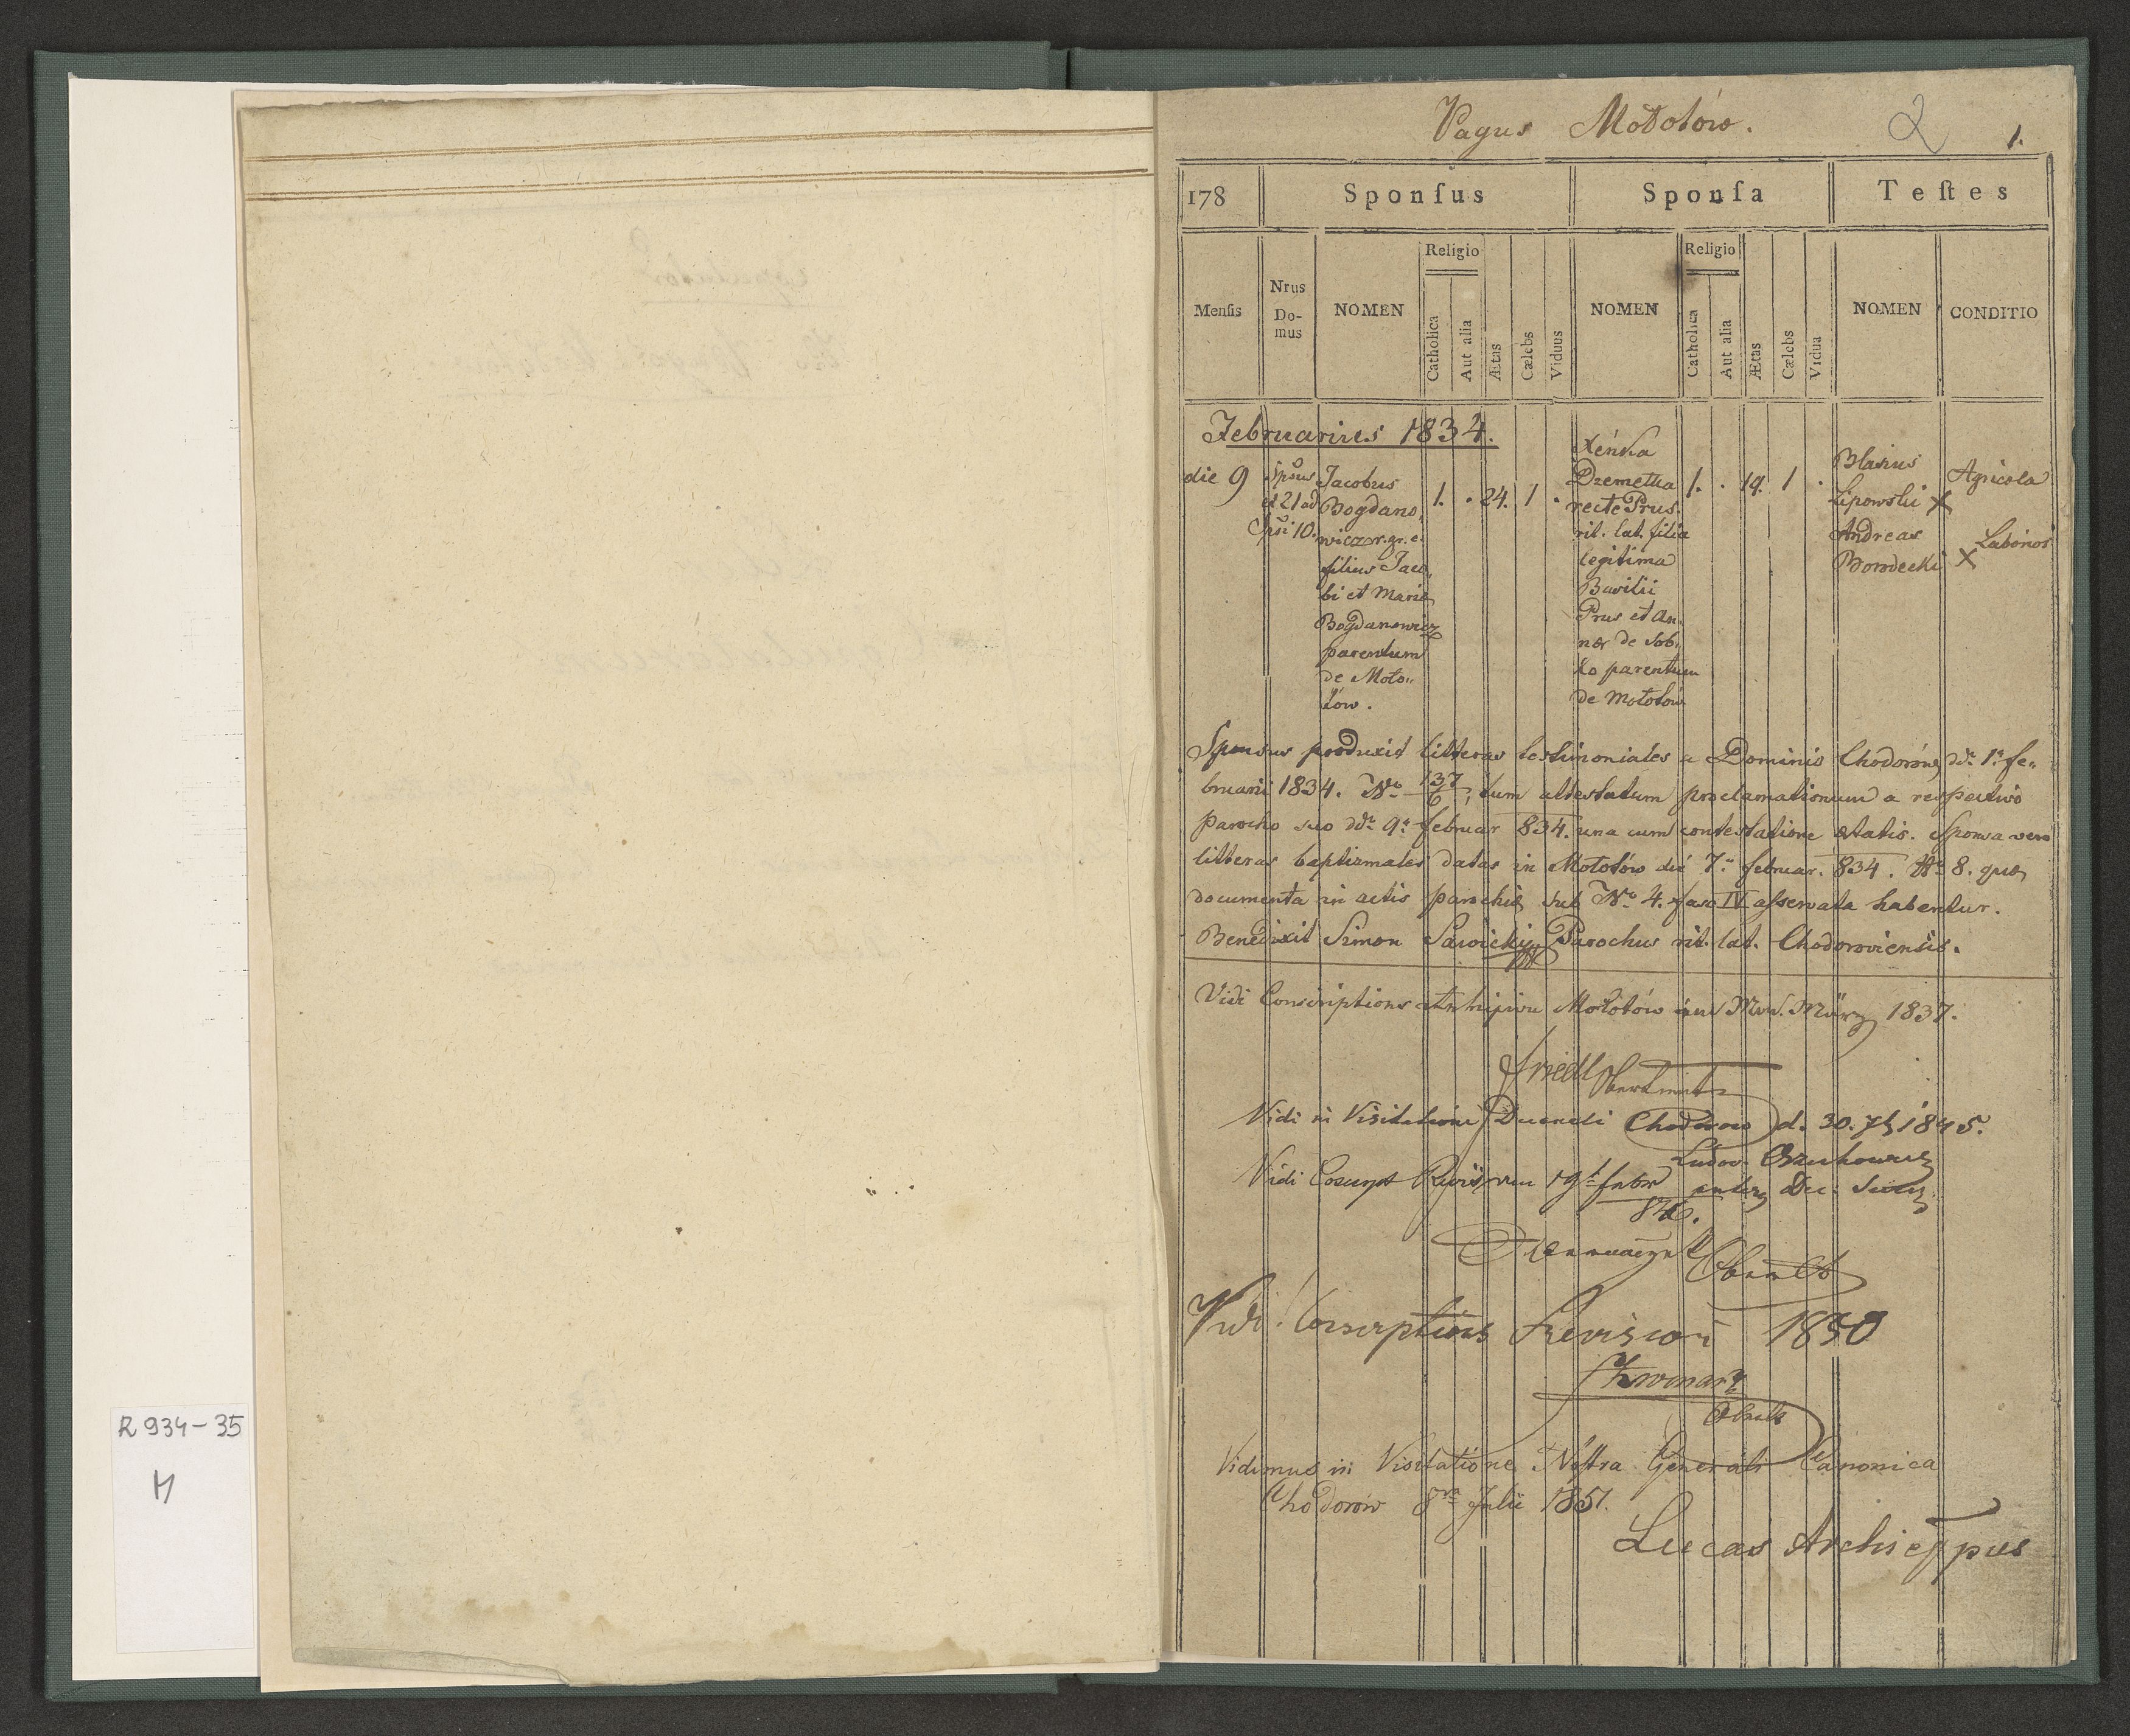 R 934-35
M
Vagus Mołotów.
2
1.
178 Sponſus Sponſa Teſtes
Menſis Nrus Do-mus NOMEN Religio Catholica Aut alia Ætas Cælebs Viduus NOMEN Religio Catholica Aut alia Ætas Cælebs Vidua NOMEN CONDITIO
Februarius 1834.
die 9
et 21 ad
10.
Jacobus
Bogdano,
wicz r. gr. c.
filius Jaco,
bi et Mariæ
Bogdanowicz
parentum
de Moło,,
tów.
1. . 24. 1 .
Xéńka
Dzemetka
recte Prus.
rit. lat. filia
legitima
Basilii
Prus et An,
næ de Sob,
ko parentum
de Mołotów
1. . 19. 1 .
Blasius
Lipowski X
Andreas
Borodecki X
Agricola
Laborios
Sponsus produxit litteras testimoniales a Dominio Chodorów ddto 1a fe,,
bruarii 1834. No 137/6; tum attestatum proclamationum a respectivo
parocho suo ddto 9a februar 834. una cum contestatione ætatis. Sponsa vero
litteras baptismales datas in Mołotów die 7a februar. 834. No 8. quæ
documenta in actis parochiæ sub No 4. fasc IV asservata habentur.
Benedixit Simon Sawicki Parochus rit. lat. Chodoroviensis.
Vidi Conscriptions Mołotów im März 1837.
Friedl
Vidi in Visitatione Decanali Chodorów d. 30. 7b 1845.
Ludov.
Vidi
Vidi Conscriptions Revision 1850
Vidimus in Visitatione Nostra Generali Canonica
Chodorów 8va Julii 1851.
Lucas Archieppus